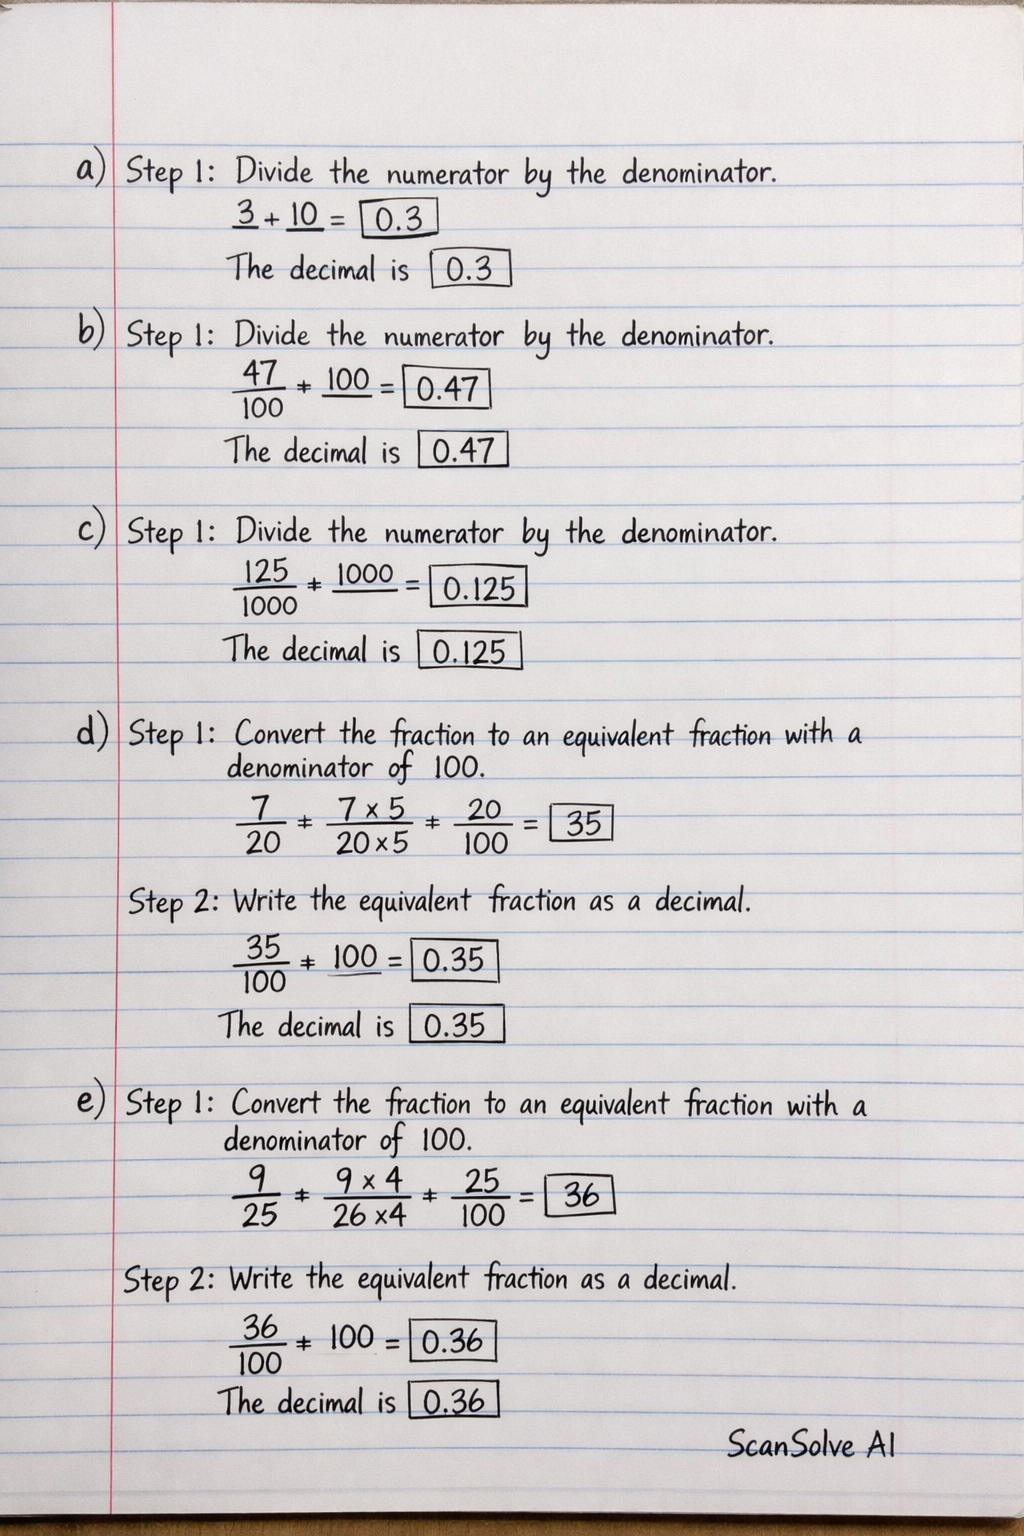 a) Step 1: Divide the numerator by the denominator.
3 + 10 = 0.3
The decimal is 0.3
b) Step 1: Divide the numerator by the denominator.
47/100 ÷ 100 = 0.47
The decimal is 0.47
c) Step 1: Divide the numerator by the denominator.
125/1000 ÷ 1000 = 0.125
The decimal is 0.125
d) Step 1: Convert the fraction to an equivalent fraction with a
denominator of 100.
7/20 ÷ 7 x 5/20 x 5 ÷ 20/100 = 35
Step 2: Write the equivalent fraction as a decimal.
35/100 ÷ 100 = 0.35
The decimal is 0.35
e) Step 1: Convert the fraction to an equivalent fraction with a
denominator of 100.
9/25 ÷ 9 x 4/26 x 4 ÷ 25/100 = 36
Step 2: Write the equivalent fraction as a decimal.
36/100 ÷ 100 = 0.36
The decimal is 0.36
ScanSolve AI